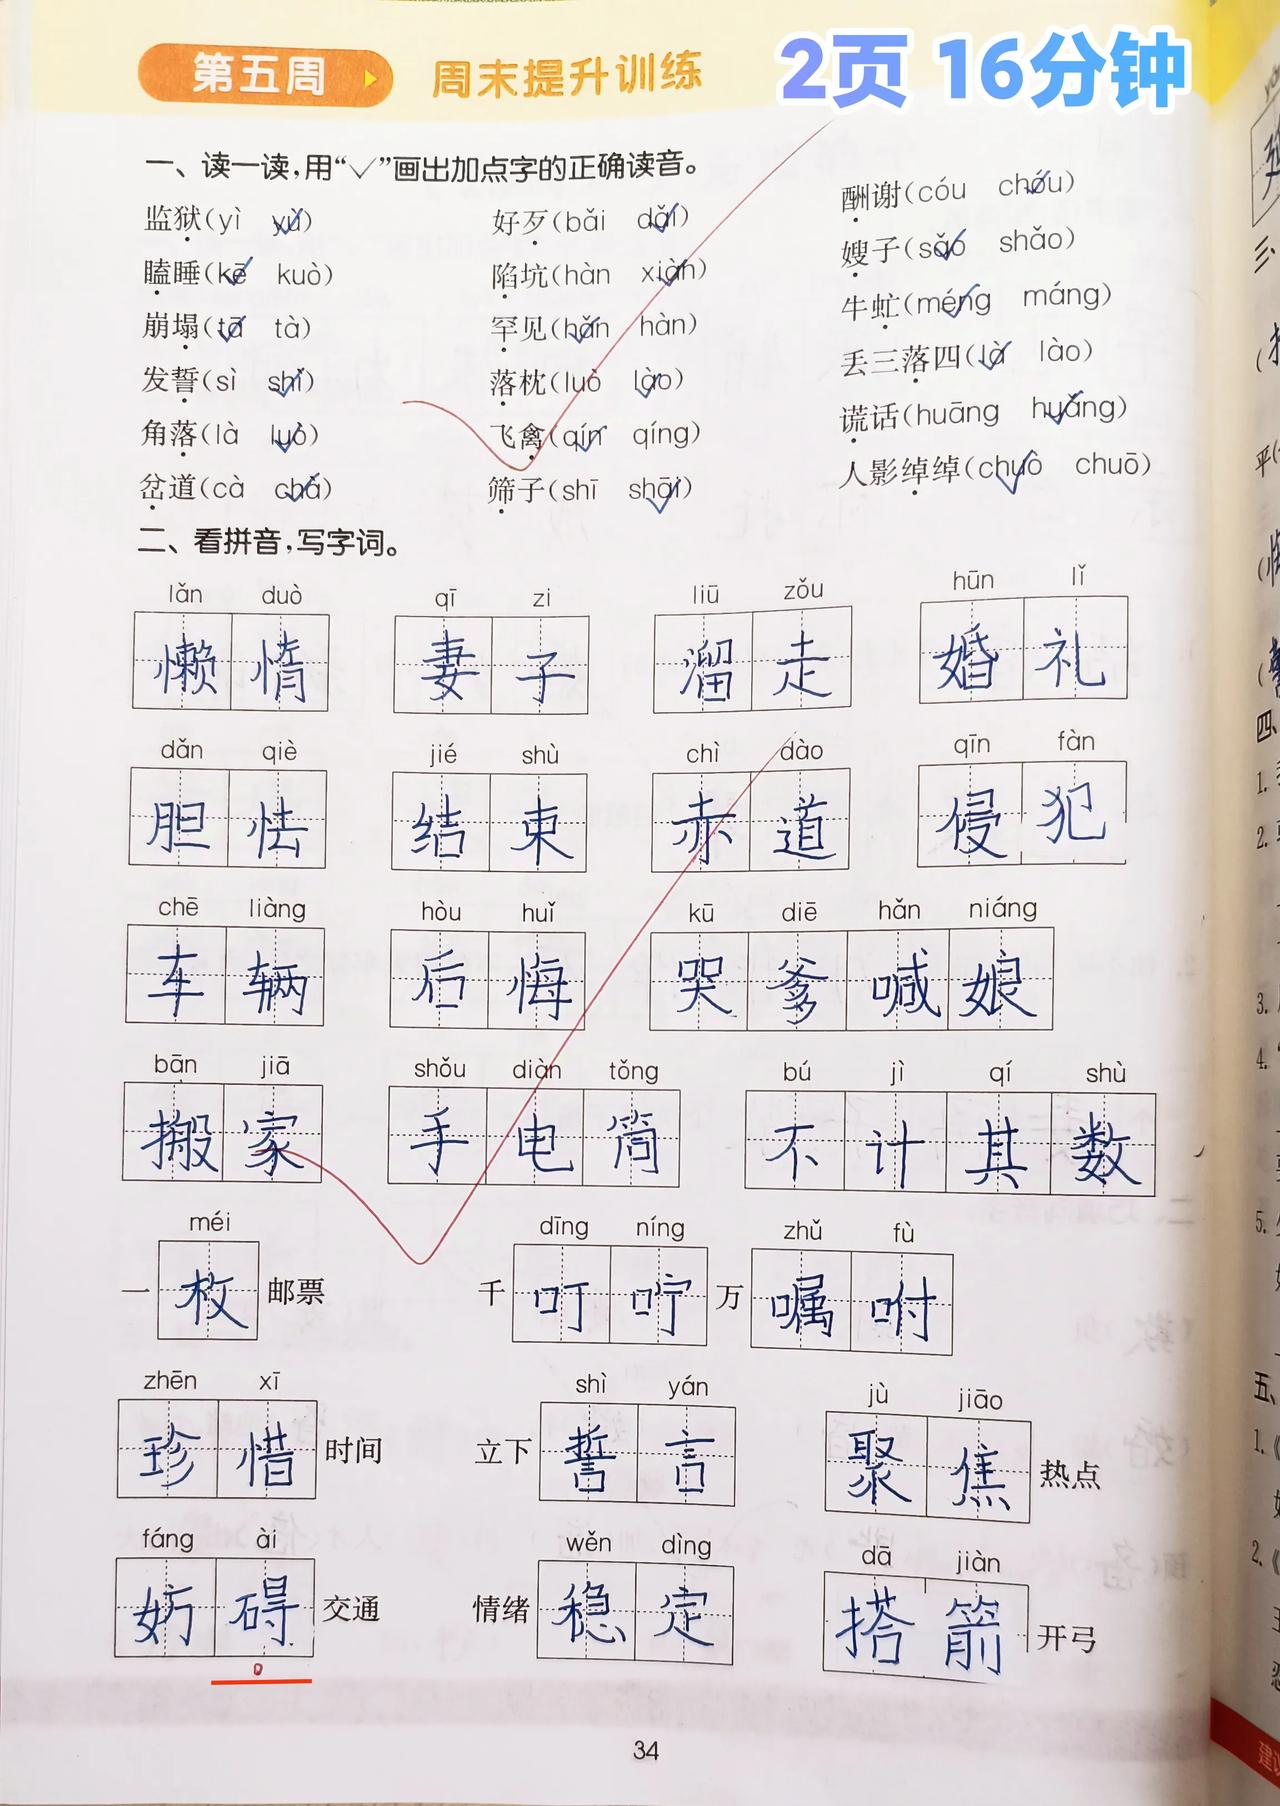 第五周 周末提升训练 2页 16分钟
一、读一读,用“✓”画出加点字的正确读音。
监狱(yì yù) 好歹(bǎi dǎi) 酬谢(cóu chóu)
瞌睡(kē kuò) 陷坑(hàn xiàn) 嫂子(sǎo shǎo)
崩塌(tā tà) 罕见(hǎn hàn) 牛虻(méng máng)
发誓(sì shì) 落枕(luò lào) 丢三落四(là lào)
角落(là luò) 飞禽(qín qíng) 谎话(huāng huǎng)
岔道(cà chà) 筛子(shī shāi) 人影绰绰(chuò chuō)
二、看拼音,写字词。
lǎn duò qī zi liū zǒu hūn lǐ
懒惰 妻子 溜走 婚礼
dǎn qiè jié shù chì dào qīn fàn
胆怯 结束 赤道 侵犯
chē liàng hòu huǐ kū diē hǎn niáng
车辆 后悔 哭爹喊娘
bān jiā shǒu diàn tǒng bú jì qí shù
搬家 手电筒 不计其数
méi dīng níng zhǔ fù
一枚邮票 千叮咛万嘱咐
zhēn xī shì yán jù jiāo
珍惜时间 立下誓言 聚焦热点
fáng ài wěn dìng dā jiàn
妨碍交通 情绪稳定 搭箭开弓
34
三、
(
平(
(
(
四、
1.
2.
3.
4.
5.
五、
1.
2.
建议